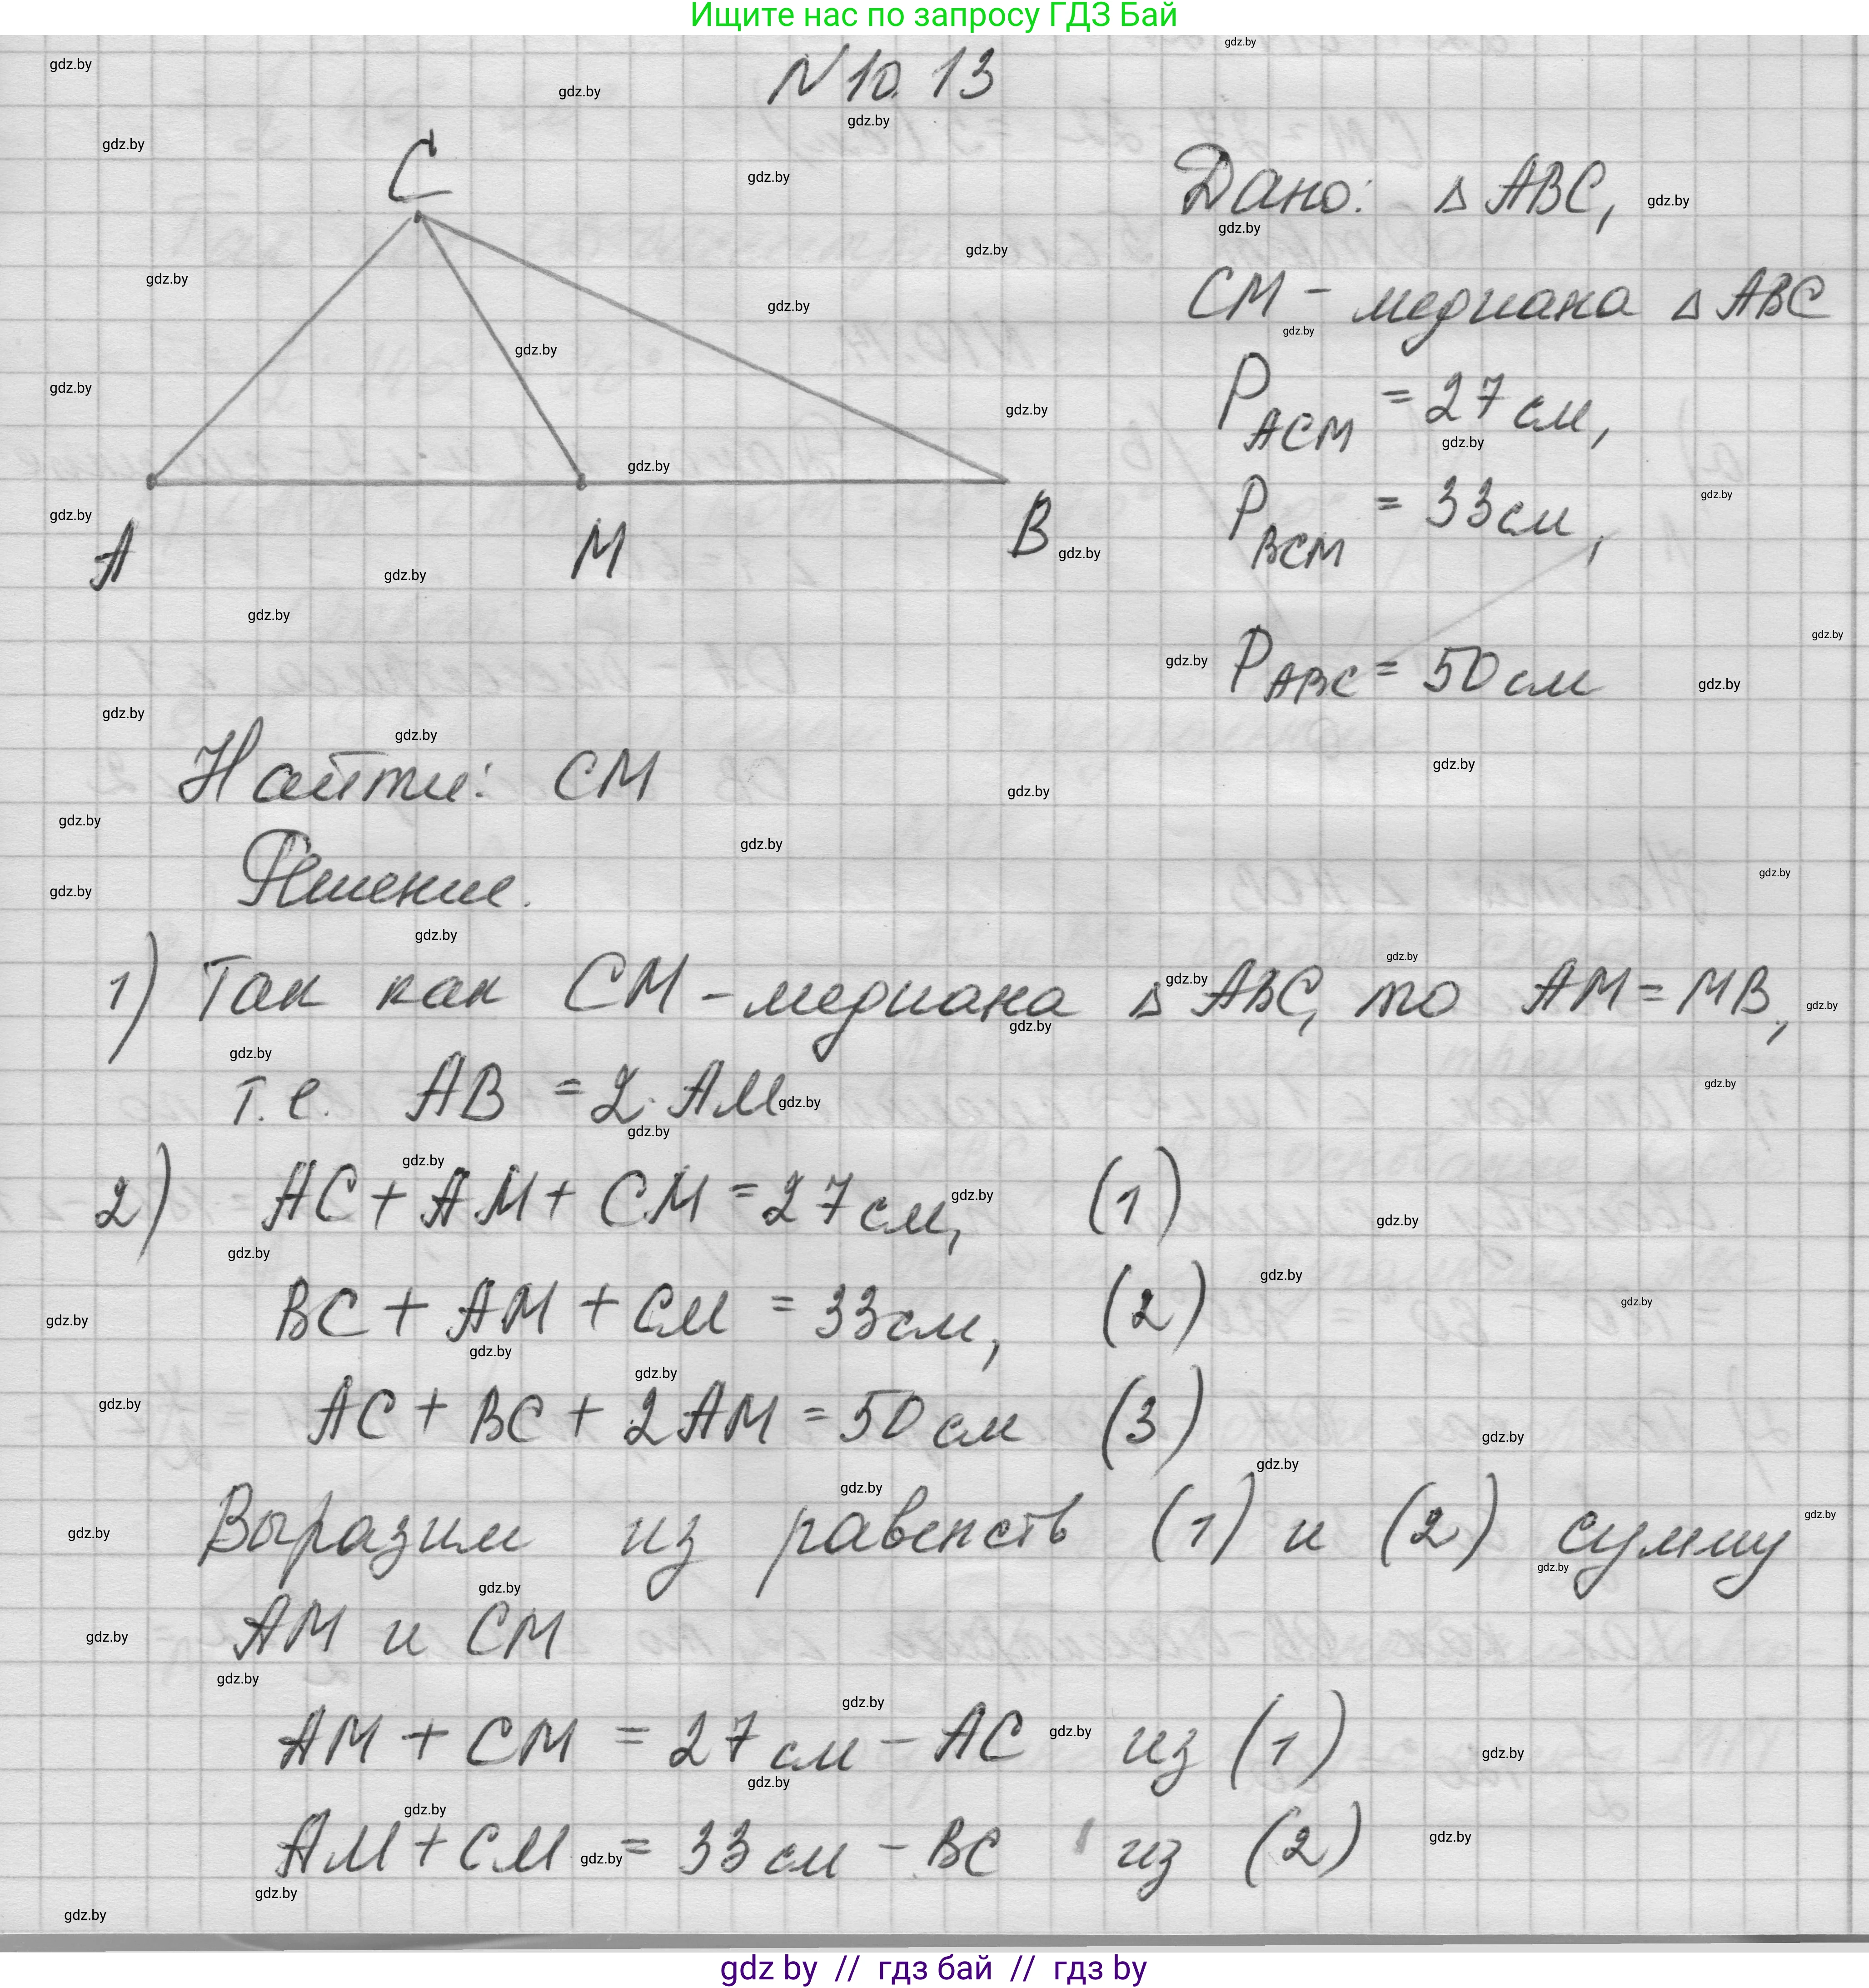 Ищите нас по запросу ГДЗ Бай
N 10.13
C
A
M
B
Дано: △ ABC,
CM - медиана △ ABC
P ACM = 27 см,
P BCM = 33 см,
P ABC = 50 см
Найти: CM
Решение.
1) Так как CM - медиана △ ABC, то AM = MB,
т.е. AB = 2·AM
2) AC + AM + CM = 27 см, (1)
BC + AM + CM = 33 см, (2)
AC + BC + 2AM = 50 см (3)
Выразим из равенств (1) и (2) сумму
AM и CM
AM + CM = 27 см - AC из (1)
AM + CM = 33 см - BC из (2)
gdz by // гдз бай // гдз by